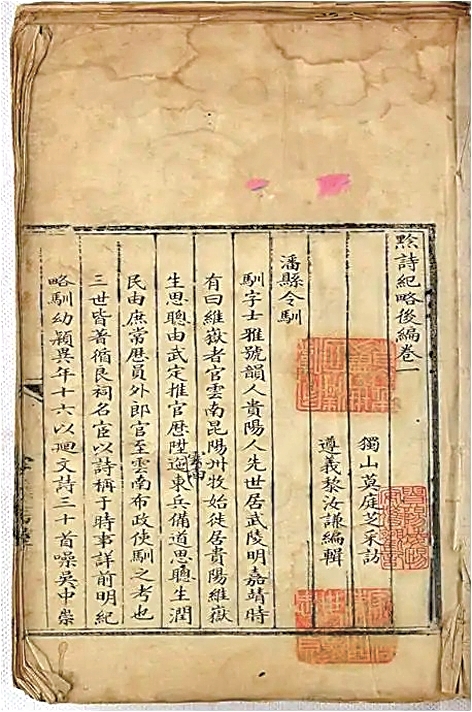 黔詩紀略後編卷一
獨山莫庭芝采訪
遵義黎汝謙編輯
潘縣令馴
馴字士雅號韻人貴陽人先世居武陵明嘉靖時
有曰維嶽者官雲南昆陽州牧始徙居貴陽維嶽
生思聰由武定推官歷陞迤東兵備道思聰生潤
雲南
民由庶常歷員外郎官至雲南布政使馴之考也
三世皆著循良祠名宦以詩稱于時事詳前明紀
略馴幼穎異年十六以廻文詩三十首噪吳中崇